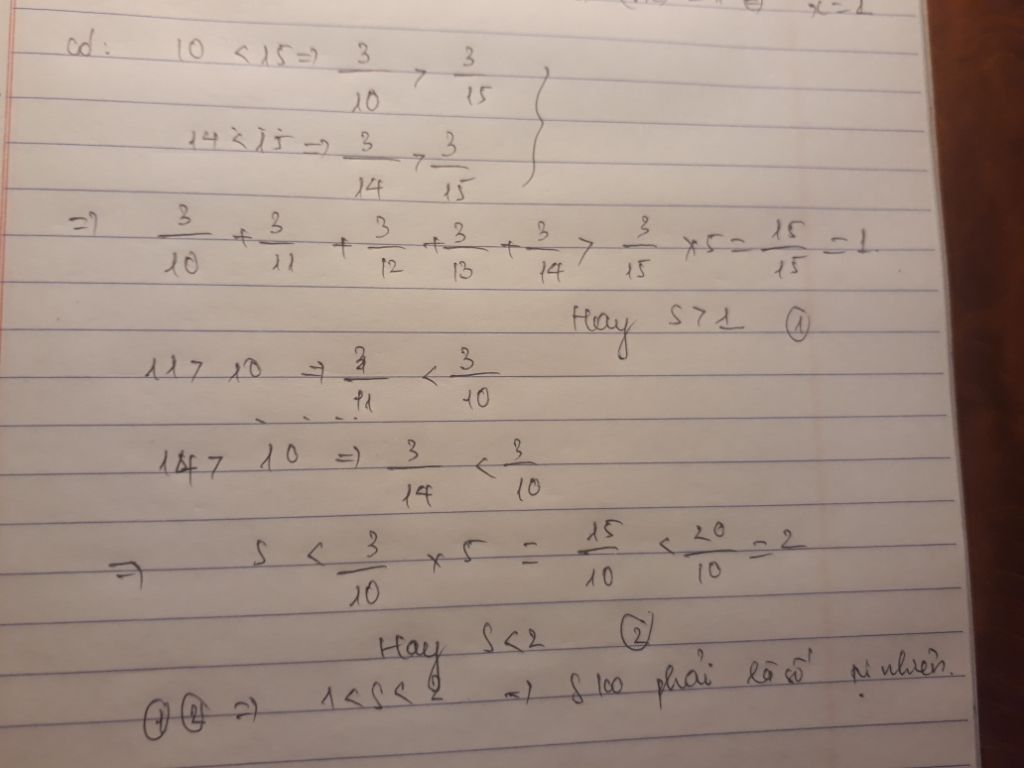 x = 1
cd: 10 < 15 => 3/10 > 3/15
14 < 15 => 3/14 > 3/15
=> 3/10 + 3/11 + 3/12 + 3/13 + 3/14 > 3/15 × 5 = 15/15 = 1
Hay S > 1 ①
11 > 10 => 3/11 < 3/10
. . . .
14 > 10 => 3/14 < 3/10
=> S < 3/10 × 5 = 15/10 < 20/10 = 2
Hay S < 2 ②
① ② => 1 < S < 2 => S phải là số nhiên.